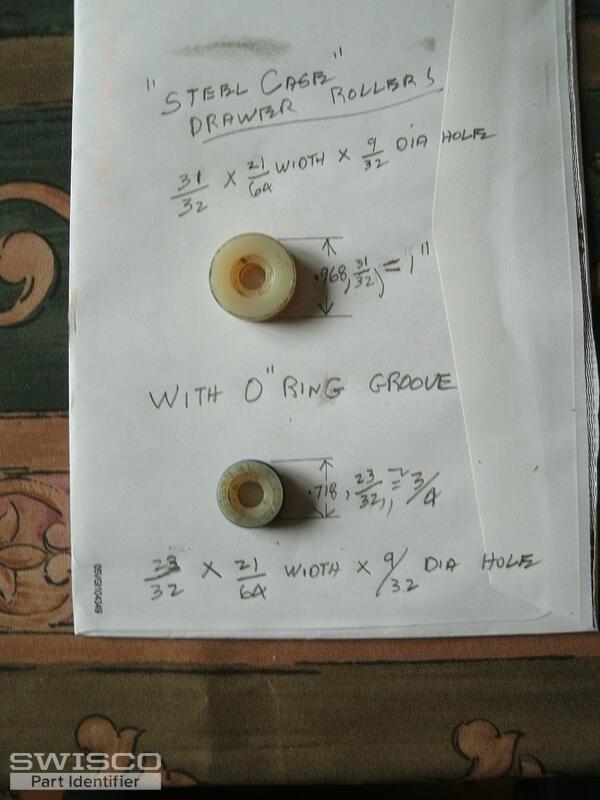 "STEEL CASE"
DRAWER ROLLERS
31/32 X 21/64 WIDTH X 9/32 DIA HOLE
.968, 31/32, = 1"
WITH O" RING GROOVE
.718, 23/32, ≈ 3/4
23/32 X 21/64 WIDTH X 9/32 DIA HOLE
SWISCO
Part Identifier